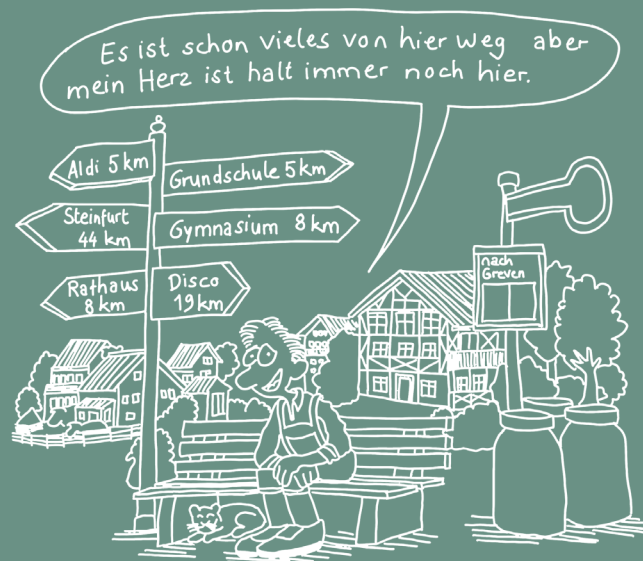 Es ist schon vieles von hier weg aber
mein Herz ist halt immer noch hier.
Aldi 5 km
Grundschule 5 km
Steinfurt
44 km
Gymnasium 8 km
Rathaus
8 km
Disco
19 km
nach
Greven